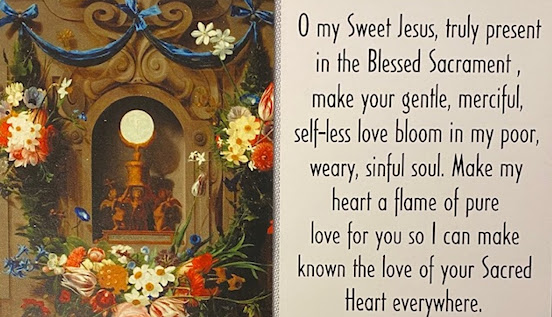 O my Sweet Jesus, truly present
in the Blessed Sacrament ,
make your gentle, merciful,
self-less love bloom in my poor,
weary, sinful soul. Make my
heart a flame of pure
love for you so I can make
known the love of your Sacred
Heart everywhere.